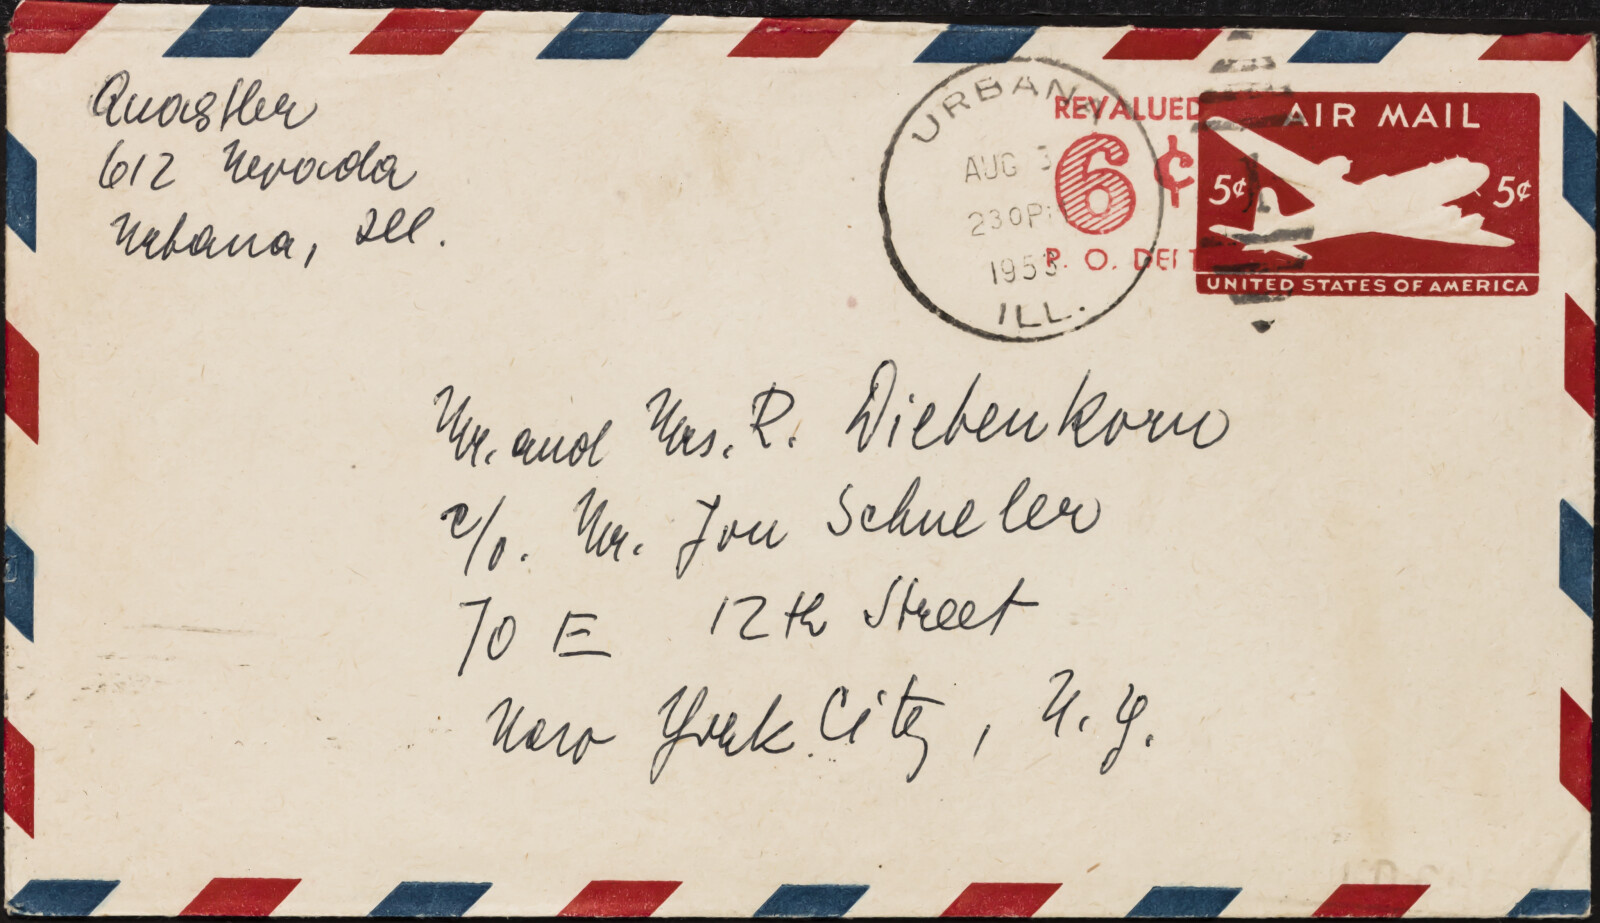 Quastler
612 Nevada
Urbana, Ill.
URBANA
AUG 3
230PM
1953
ILL.
REVALUED
6¢
P. O. DEPT
AIR MAIL
5¢ 5¢
UNITED STATES OF AMERICA
Mr. and Mrs. R. Diebenkorn
c/o. Mr. Jon Schueler
70 E 12th Street
New York City, N. Y.